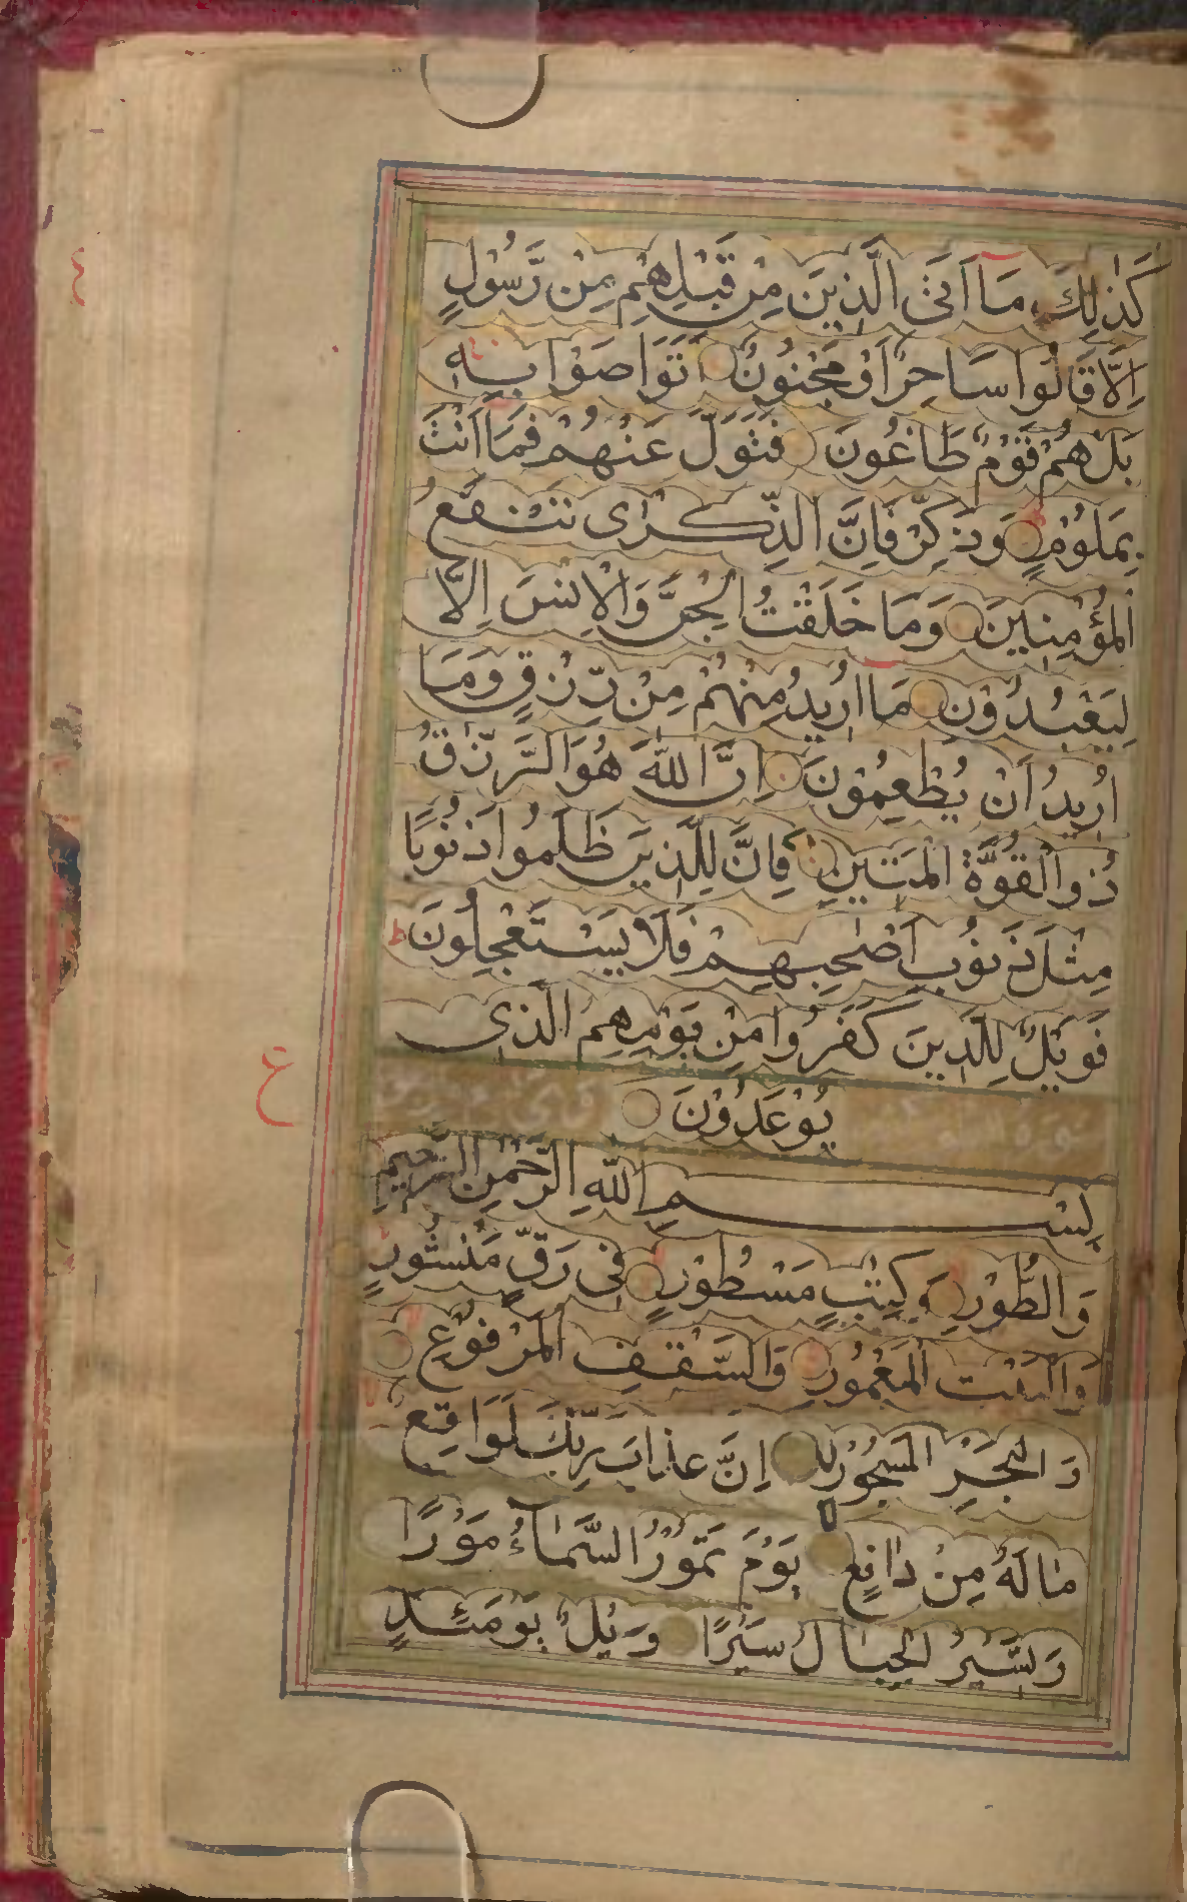 كَذٰلِكَ مَآ اَتَى الَّذِينَ مِنْ قَبْلِهِمْ مِنْ رَّسُوْلٍ
اِلَّا قَالُوا سَاحِرٌ اَوْ مَجْنُوْنٌ اَتَوَاصَوْا بِهٖ
بَلْ هُمْ قَوْمٌ طَاغُونَ فَتَوَلَّ عَنْهُمْ فَمَآ اَنْتَ
بِمَلُوْمٍ وَذَكِّرْ فَاِنَّ الذِّكْرٰى تَنْفَعُ
الْمُؤْمِنِينَ وَمَا خَلَقْتُ الْجِنَّ وَالْاِنْسَ اِلَّا
لِيَعْبُدُوْنِ مَآ اُرِيدُ مِنْهُمْ مِنْ رِّزْقٍ وَمَا
اُرِيدُ اَنْ يُطْعِمُوْنَ اِنَّ اللّٰهَ هُوَ الرَّزَّاقُ
ذُو الْقُوَّةِ الْمَتِينِ فَاِنَّ لِلَّذِينَ ظَلَمُوا ذَنُوْبًا
مِثْلَ ذَنُوْبِ اَصْحٰبِهِمْ فَلَا يَسْتَعْجِلُوْنَ ط
فَوَيْلٌ لِلَّذِينَ كَفَرُوا مِنْ يَوْمِهِمُ الَّذِى
يُوْعَدُوْنَ
بِسْمِ اللّٰهِ الرَّحْمٰنِ الرَّحِيمِ
وَالطُّوْرِ وَكِتٰبٍ مَسْطُوْرٍ فِى رَقٍّ مَنْشُوْرٍ
وَالْبَيْتِ الْمَعْمُوْرِ وَالسَّقْفِ الْمَرْفُوْعِ
وَالْبَحْرِ الْمَسْجُوْرِ اِنَّ عَذَابَ رَبِّكَ لَوَاقِع
مَا لَهٗ مِنْ دَافِعٍ يَوْمَ تَمُوْرُ السَّمَآءُ مَوْرًا
وَتَسِيْرُ الْجِبَالُ سَيْرًا وَيْلٌ يَوْمَئِذٍ
ع
٤